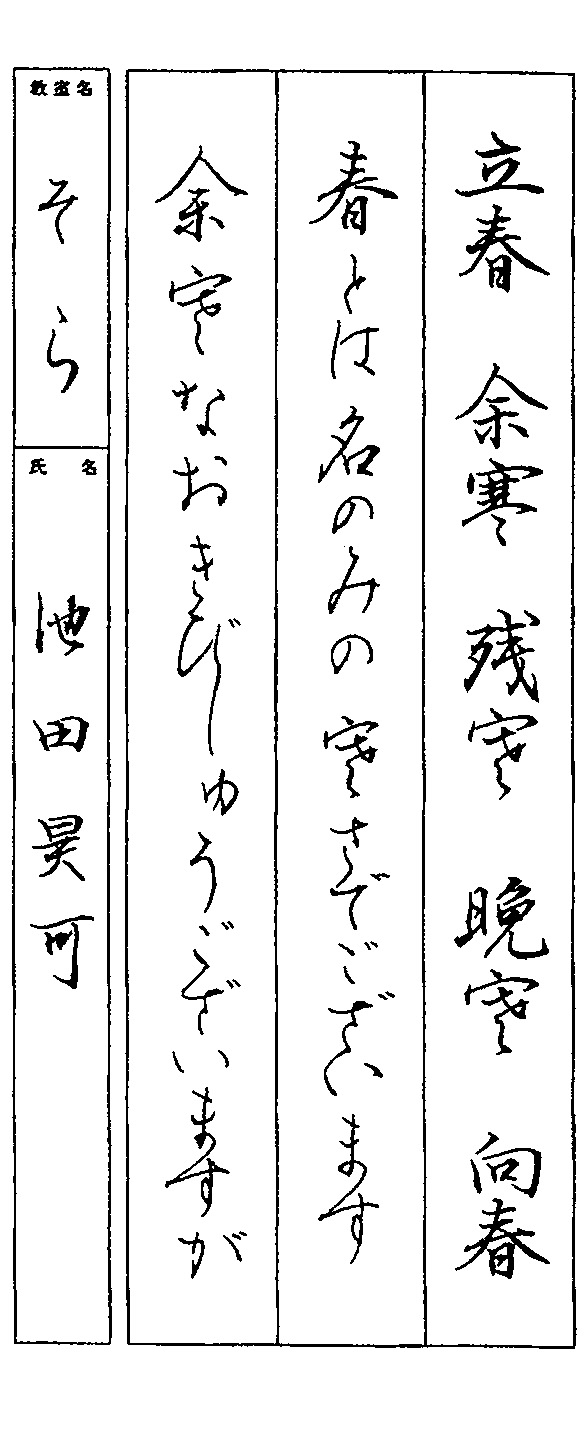 立春 余寒 残寒 晩寒 向春
春とは名のみの寒さでございます
余寒なおきびしゅうございますが
教室名
そら
氏名
池田晃可